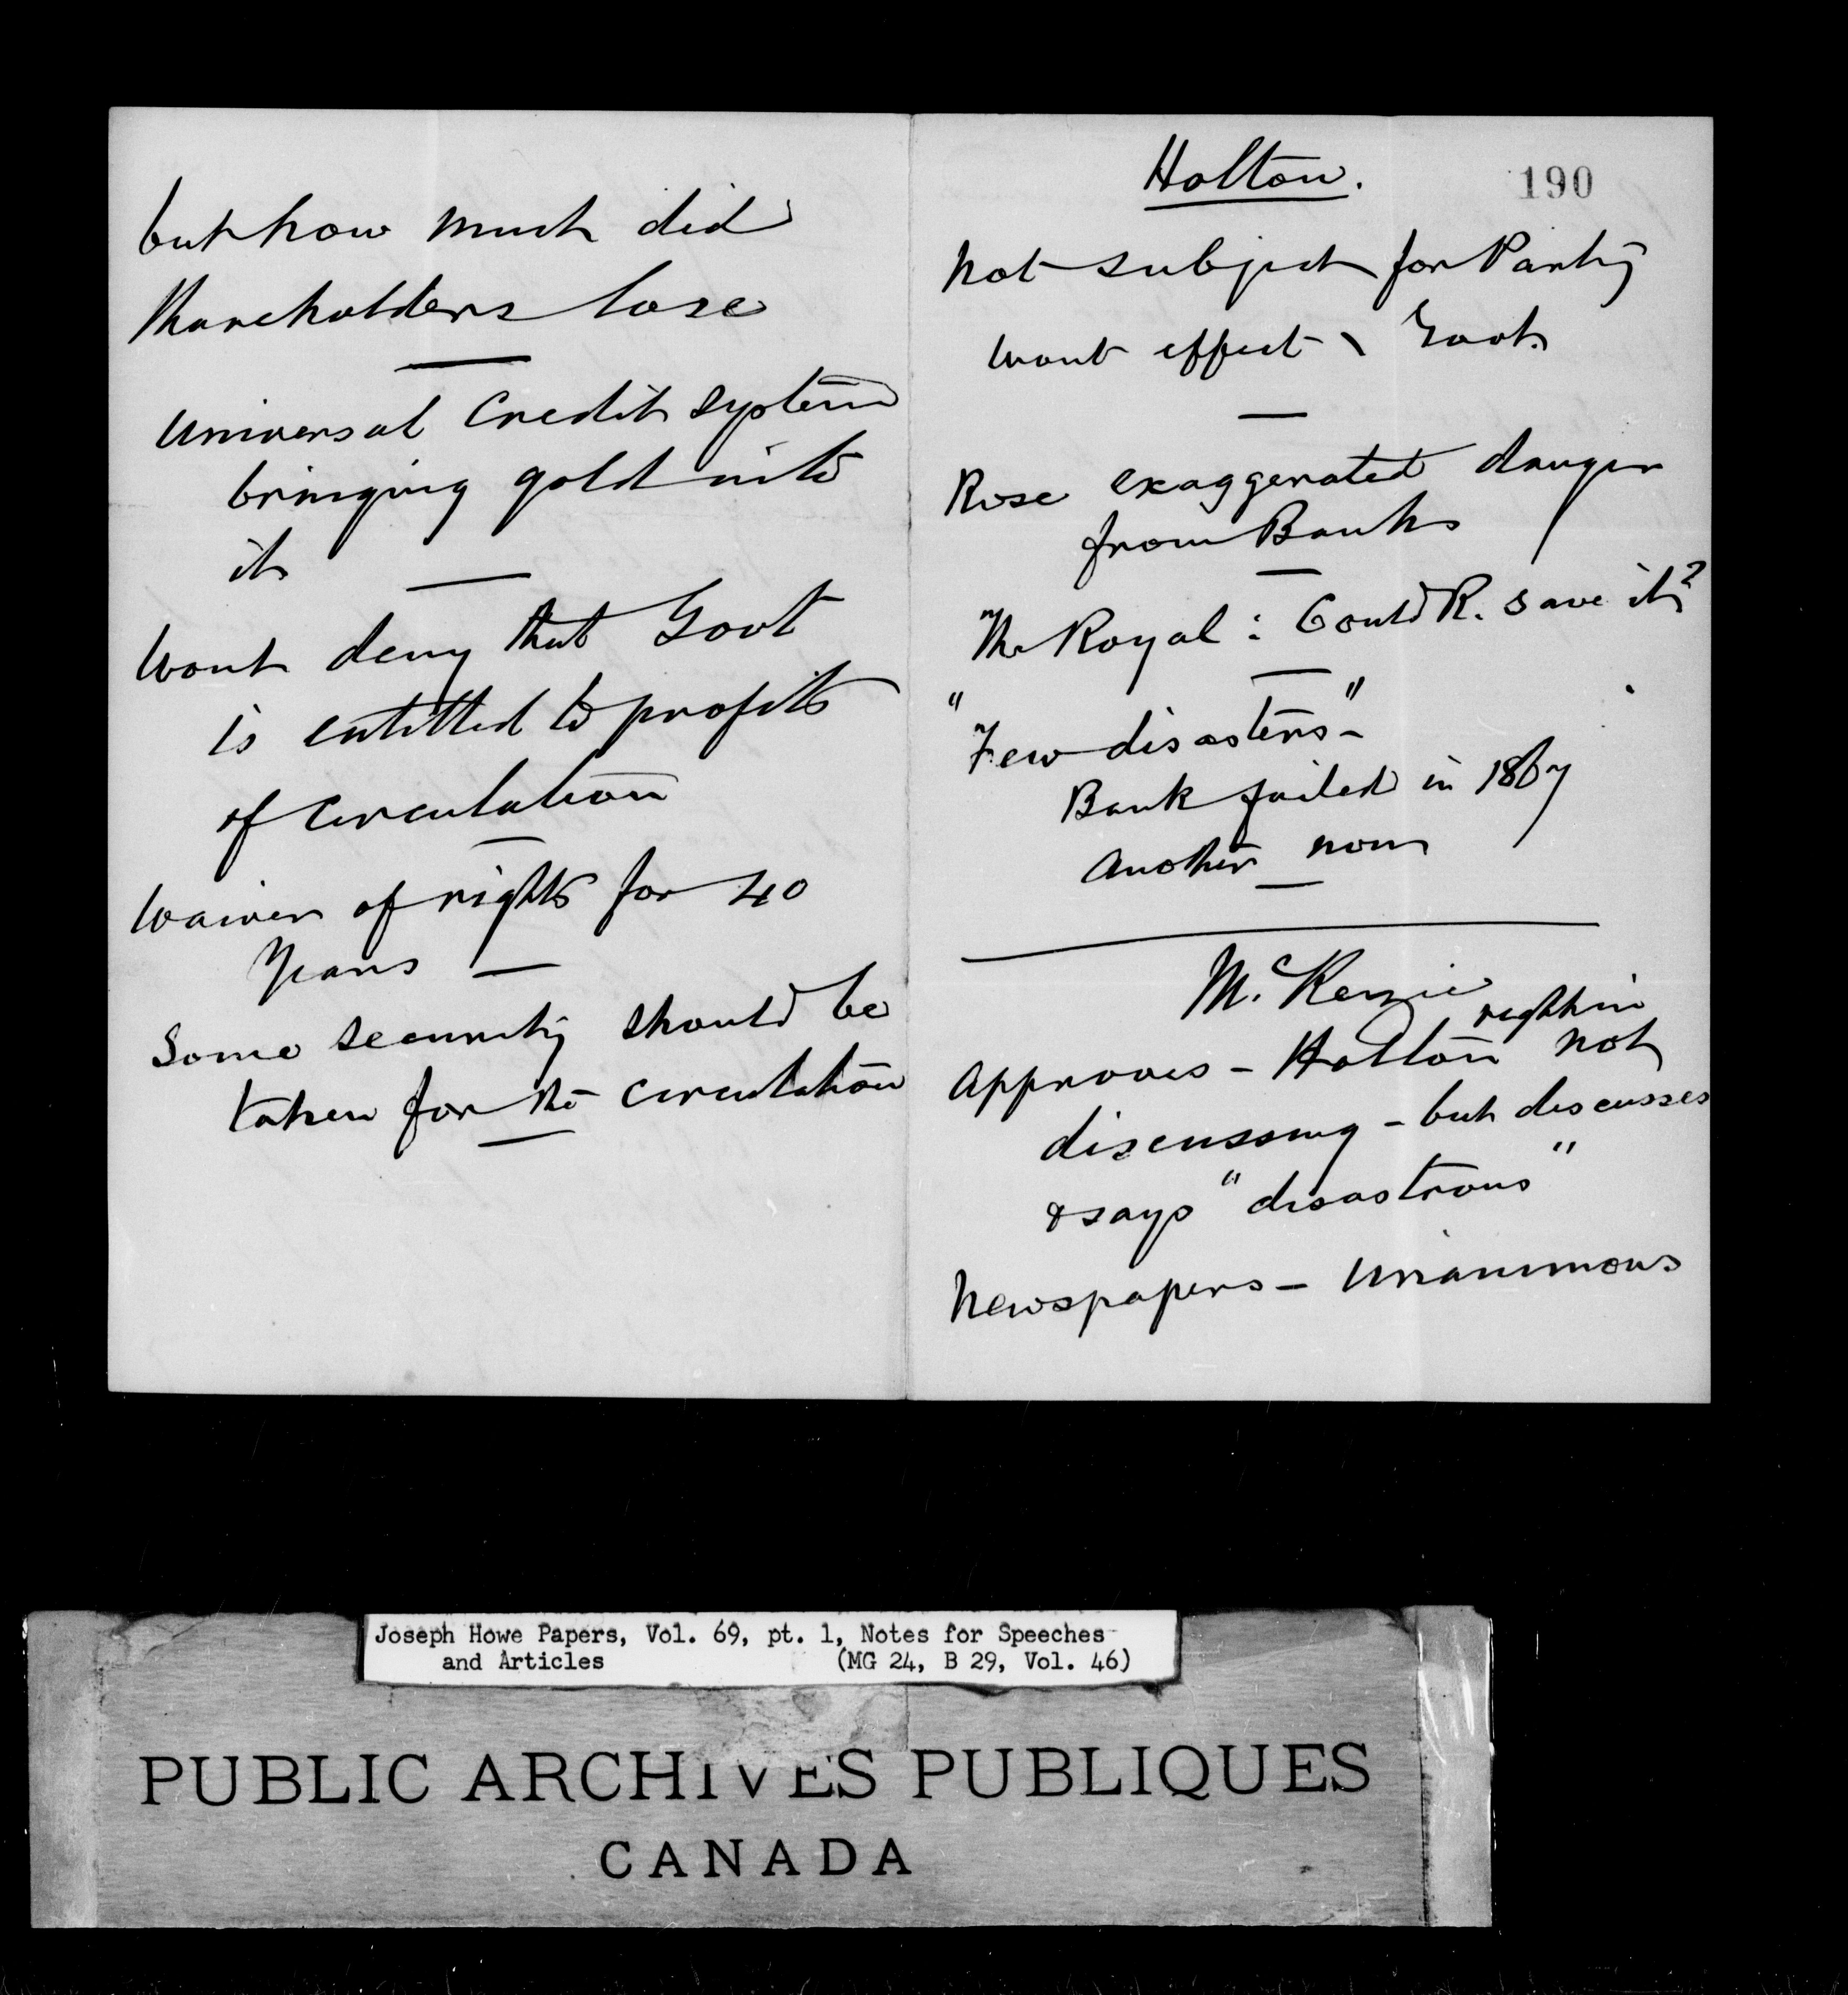 but how much did
shareholders lose
Universal Credit System
bringing gold into
it
Wont deny that Govt
is entitled to profits
of circulation
Waiver of rights for 40
Years —
Some security should be
taken for the circulation
Holton.
190
Not subject for Party
Wont effect Govt.
Rose exaggerated danger
from Banks
"The Royal: Could R. save it?
"
"Few disasters" -
Bank failed in 1867
Another now
McKenzie
right in
Approves - Holton not
discussing - but discusses
& says "disastrous"
Newspapers - Unanimous
Joseph Howe Papers, Vol. 69, pt. 1, Notes for Speeches
and Articles (MG 24, B 29, Vol. 46)
PUBLIC ARCHIVES PUBLIQUES
CANADA